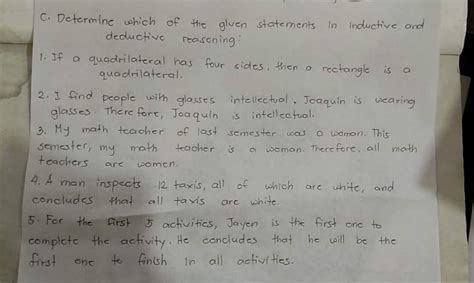 C. Determine which of the given statements in inductive and
deductive reasoning:
1. If a quadrilateral has four sides, then a rectangle is a
quadrilateral.
2. I find people with glasses intellectual, Joaquin is wearing
glasses. Therefore, Joaquin is intellectual.
3. My math teacher of last semester was a woman. This
semester, my math teacher is a woman. Therefore, all math
teachers are women.
4. A man inspects 12 taxis, all of which are white, and
concludes that all taxis are white.
5. For the first 5 activities, Jayen is the first one to
complete the activity. He concludes that he will be the
first one to finish in all activities.